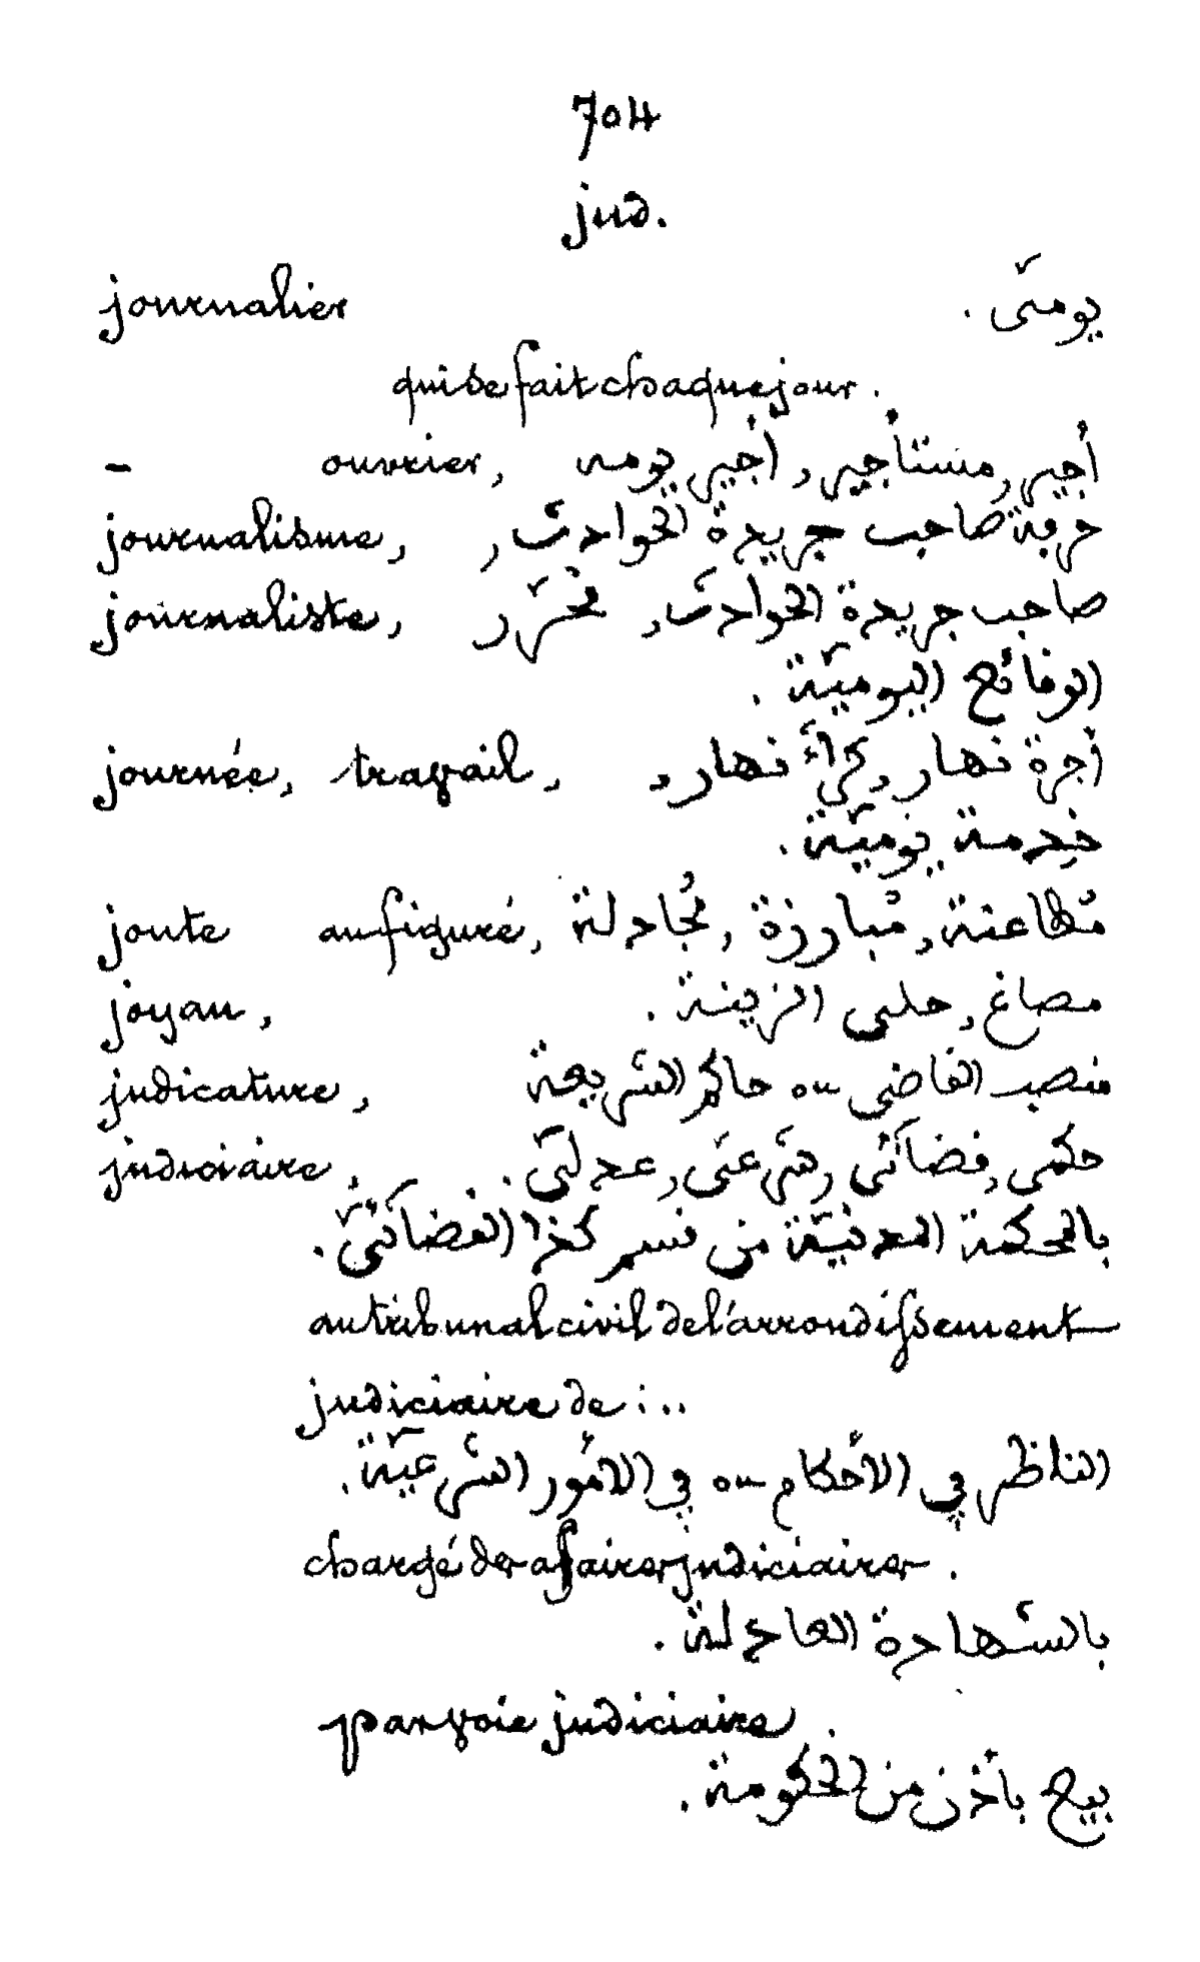 704
jud.
journalier يومىّ .
qui se fait chaque jour .
— ouvrier, أجير, مستأجير, أجير يومه
journalisme, حرفة صاحب جريدة الحوادث,
journaliste, صاحب جريدة الحوادث, محرّر
الوقائع اليوميّة .
journée, travail, أجرة نهار, كرآء نهار,
خدمة يوميّة .
joute au figuré, مُطاعنة, مُبارزة, مُجادلة
joyau, مصاغ, حلى الزينة .
judicature, منصب القاضى ou حاكم الشريعة
judiciaire, حكمى, قضآئى, شرعىّ, عدلىّ .
بالمحكمة المدنيّة من قسم كذا القضآئىّ .
au tribunal civil de l'arrondissement
judiciaire de :..
الناظر في الأحكام ou في الأمور الشرعيّة .
chargé des affaires judiciaires .
بالشهادة العادلة .
par voie judiciaire .
بيع بأذن من الحكومة .